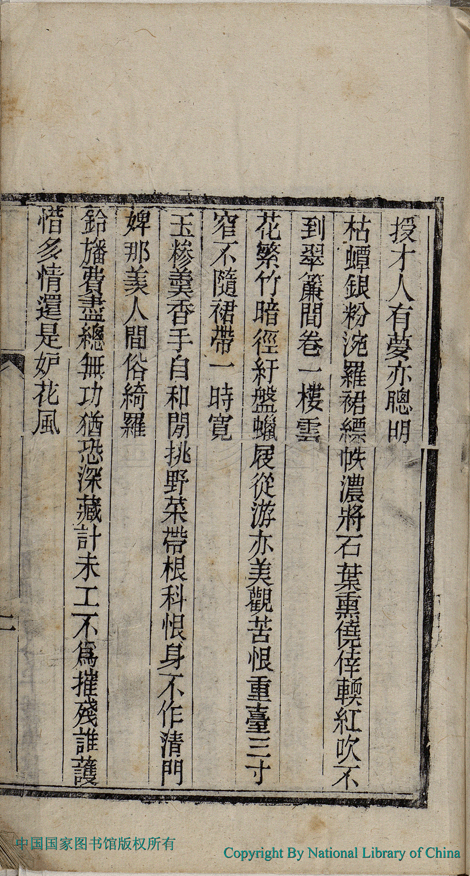 授才人有夢亦聰明
枯蟫銀粉涴羅裙縹帙濃將石葉熏僥倖輭紅吹不
到翠簾閒卷一樓雲
花繁竹暗徑紆盤蠟屐從游亦美觀苦恨重臺三寸
窄不隨裙帶一時寬
玉糝羹香手自和閒挑野菜帶根科恨身不作清門
婢那羡人間俗綺羅
鈴旛費盡總無功猶恐深藏計未工不爲摧殘誰護
惜多情還是妒花風
二
中国国家图书馆版权所有
Copyright By National Library of China